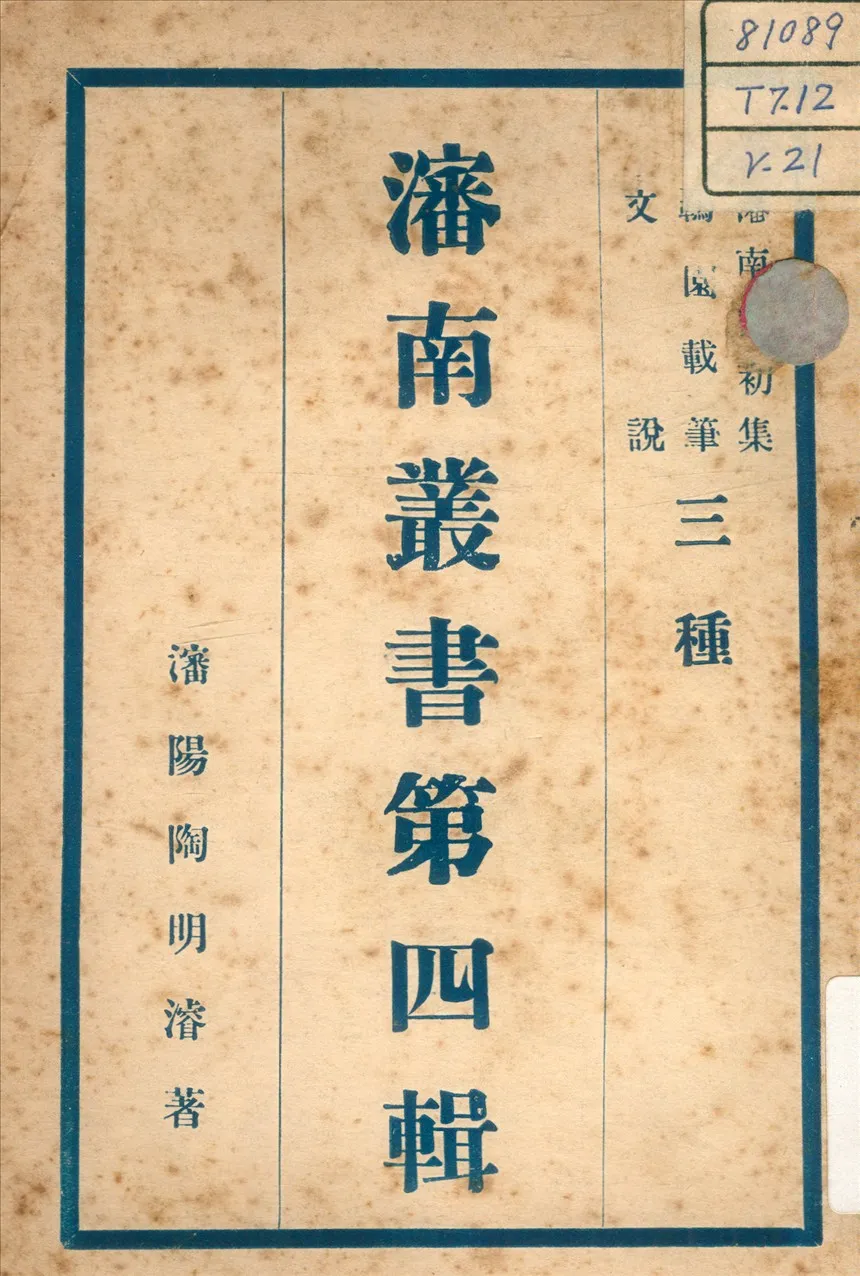 81089
T7.12
V.21
瀋南初集
園載筆
文說
三種
瀋南叢書第四輯
瀋陽陶明濬著